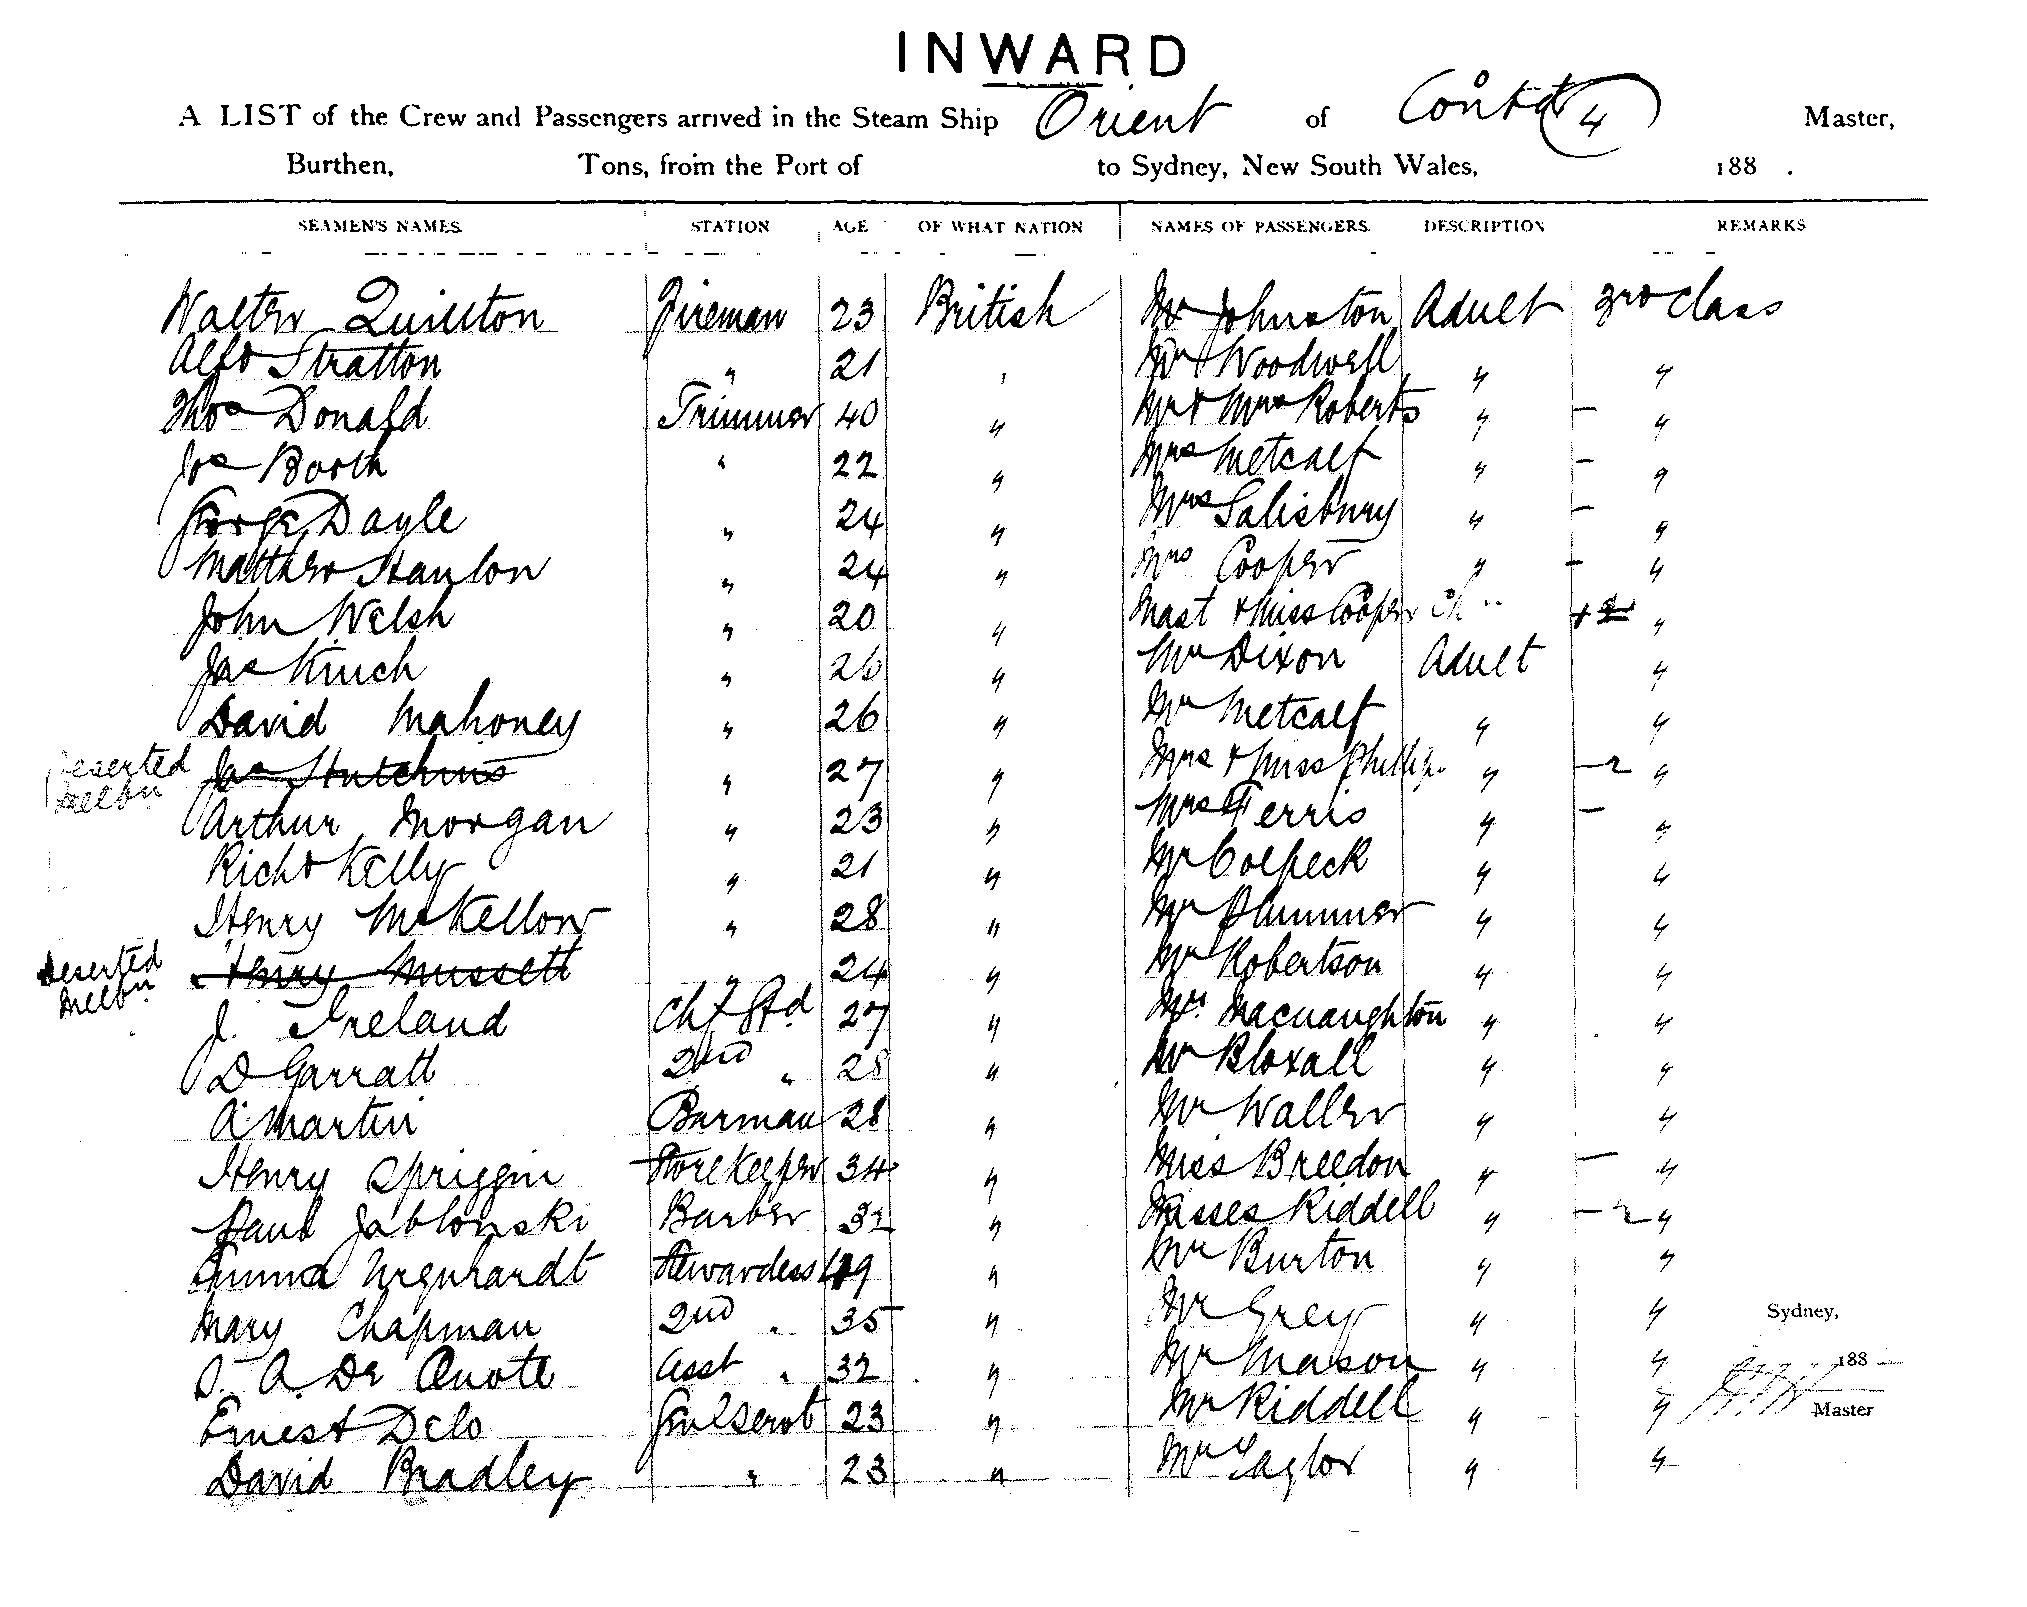 INWARD
A LIST of the Crew and Passengers arrived in the Steam Ship Orient of Contd 4 Master,
Burthen, Tons, from the Port of to Sydney, New South Wales, 188 .
SEAMEN'S NAMES. STATION AGE OF WHAT NATION NAMES OF PASSENGERS. DESCRIPTION REMARKS
Walter Quinton Fireman 23 British Mr Johnston Adult 3rd Class
Alfd Stratton " 21 " Mr Woodwell " "
Thos Donald Trimmer 40 " Mr & Mrs Roberts " – "
Jos Booth " 22 " Mrs Metcalf " – "
George Dayle " 24 " Mrs Salisbury " – "
Matthew Hanlon " 24 " Mrs Cooper " – "
John Welsh " 20 " Mast & Miss Cooper Ch "
Jas Kinch " 26 " Mr Dixon Adult "
David Mahoney " 26 " Mr Metcalf " "
Deserted Melbn Jas Hutchins " 27 " Mrs & Miss Phillips " – 2 "
Arthur Morgan " 23 " Mrs Ferris " – "
Richd Kelly " 21 " Mr Colpeck " "
Henry McKellow " 28 " Mr Plummer " "
Deserted Melbn Henry Mussett " 24 " Mr Robertson " "
J. Ireland Chf Std 27 " Mr. Macnaughton " "
D Garratt 2nd " 28 " Mr Bloxall " "
A Martin Barman 28 " Mr Waller " "
Henry Spriggin Storekeeper 34 " Miss Breedon " – "
Paul Jablonski Barber 32 " Misses Riddell " – 2 "
Emma Urquhardt Stewardess 49 " Mr Burton " "
Mary Chapman 2nd " 35 " Mr Grey " " Sydney,
A. De Quote Asst " 32 " Mr Mason " " 188
Ernest Delo Genl Servt 23 " Mr Riddell " " Master
David Bradley " 23 " Mr Taylor " "